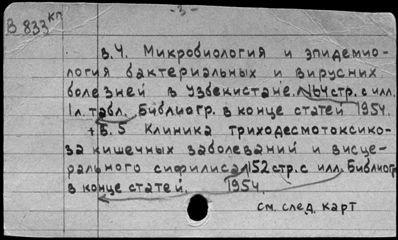 В 833кп
- 3 -
в.4. Микробиология и эпидемио-
логия бактериальных и вирусных
болезней в Узбекистане. 164 стр. с илл.
1 л. табл. Библиогр. в конце статей 1954.
+ Б. 5 Клиника триходесмотоксико-
за кишечных заболеваний и висце-
рального сифилиса 152 стр. с илл. Библиогр
в конце статей. 1954.
см. след. карт